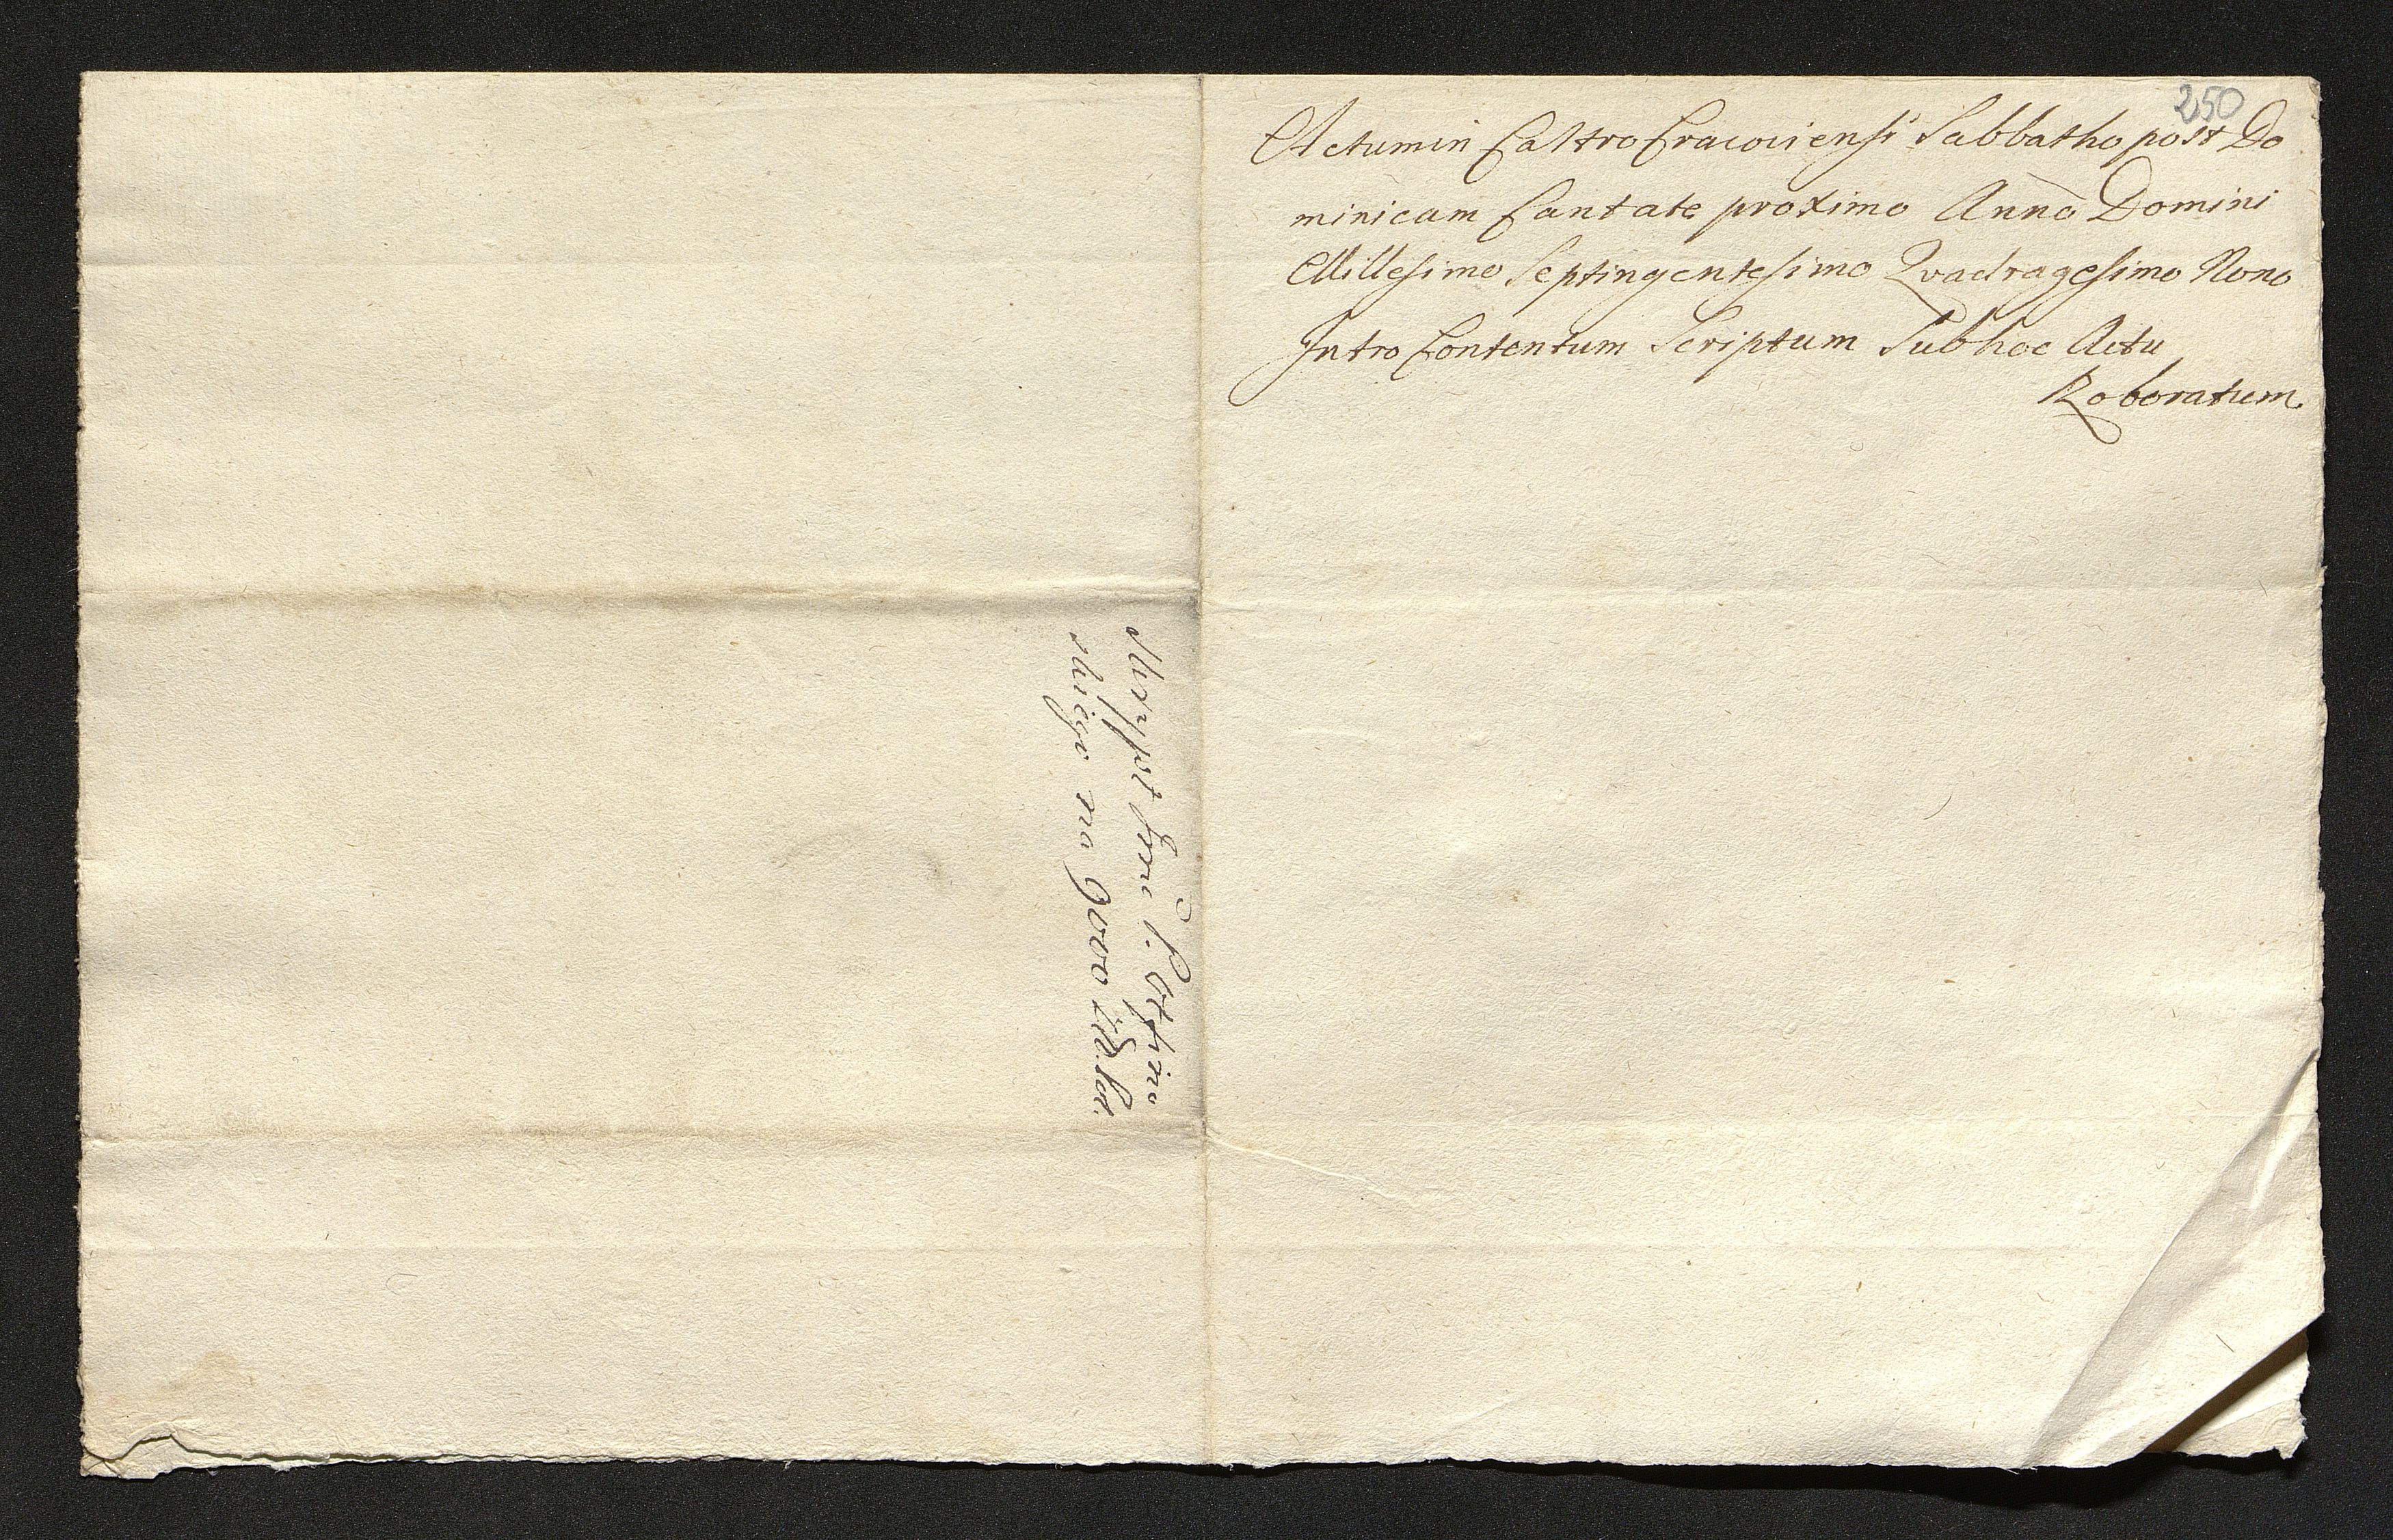 250
Actum in Castro Cracoviensi Sabbatho post Do
minicam Cantate proximo Anno Domini
Millesimo Septingentesimo Qvadragesimo Nono
Intro Contentum Scriptum Sub hoc Actu
Roboratum.
Manifest
skiego na